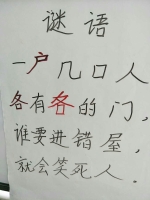 谜语
一户几口人
各有各的门，
谁要进错屋，
就会笑死人．